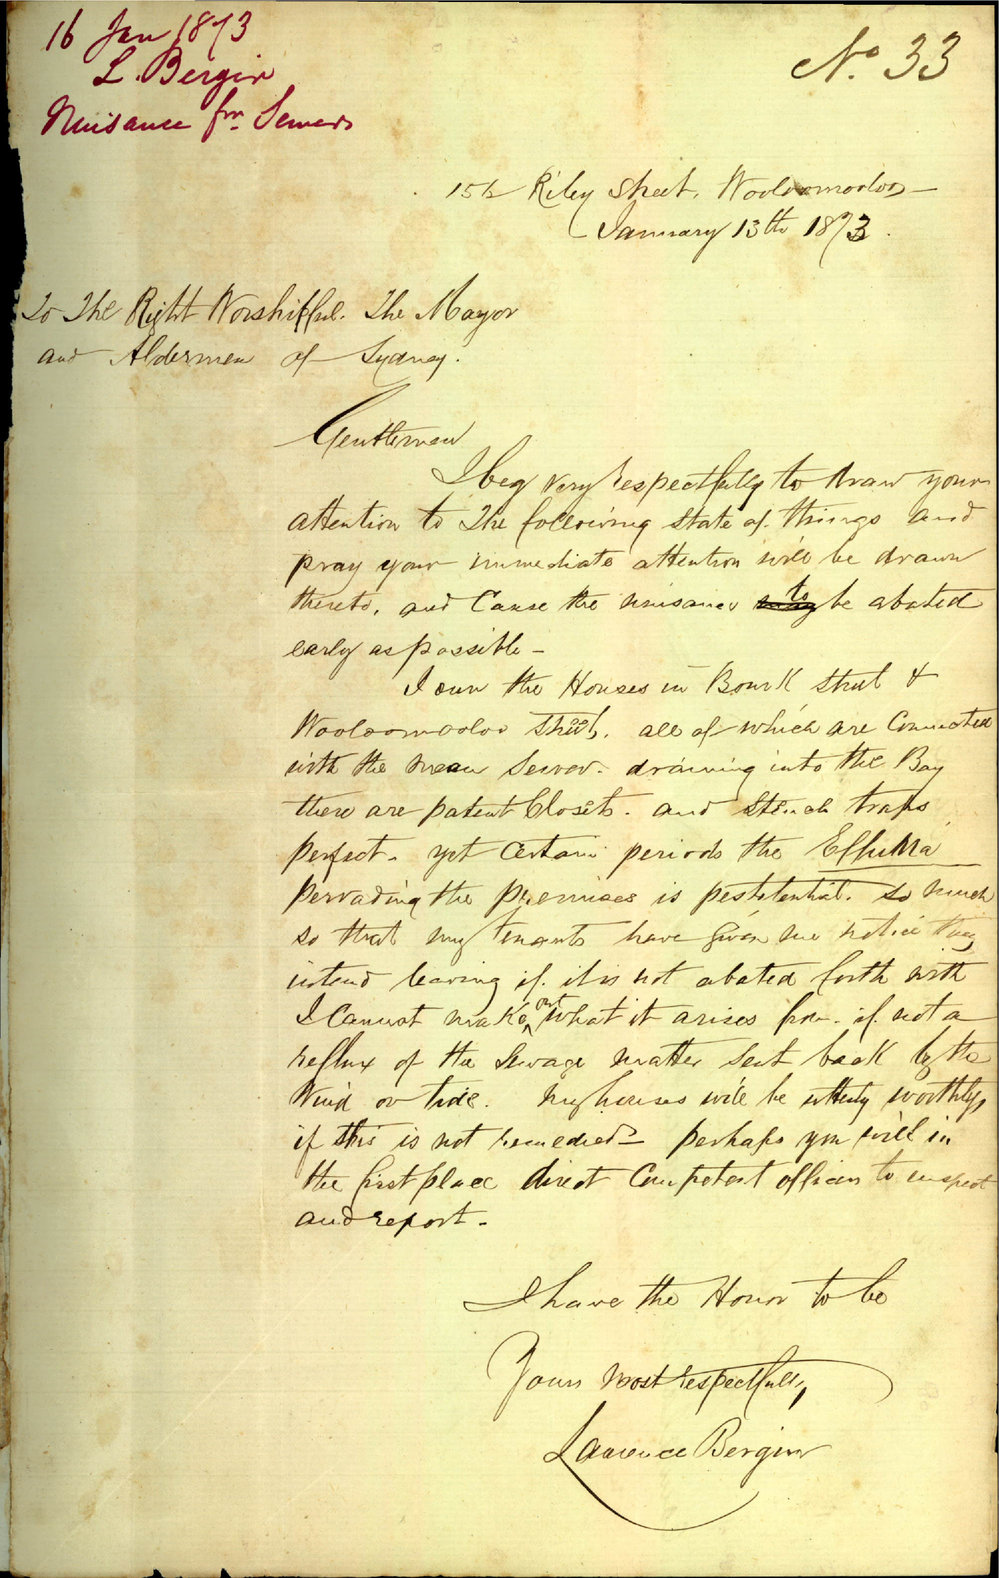 16 Jan 1873
L. Bergin
Nuisance frm Sewers
No. 33
Riley Street, Wooloomooloo
January 13th 1873.
To The Right Worshipful. The Mayor
and Aldermen of Sydney.
Gentlemen
I beg very respectfully to draw your
attention to The following state of things and
pray your immediate attention will be drawn
thereto, and Cause the nuisance to be abated
early as possible -
I own the Houses in Bourk Street &
Wooloomooloo Street, all of which are Connected
with the mean Sewer. draining into the Bay
there are patent Closets. and Stench traps
perfect. yet Certain periods the Effuvia
Pervading the premises is pestetential. So much
so that my tenants have given me notice they
intend leaving if it is not abated forth with
I Cannot make out what it arises from. if not a
reflux of the Sewage matter sent back by the
Wind or tide. My houses will be utterly worthless
if this is not remedied - perhaps you will in
the first place direct Competent officers to inspect
and report -
I have the Honor to be
Yours most respectfully,
Laurence Bergin